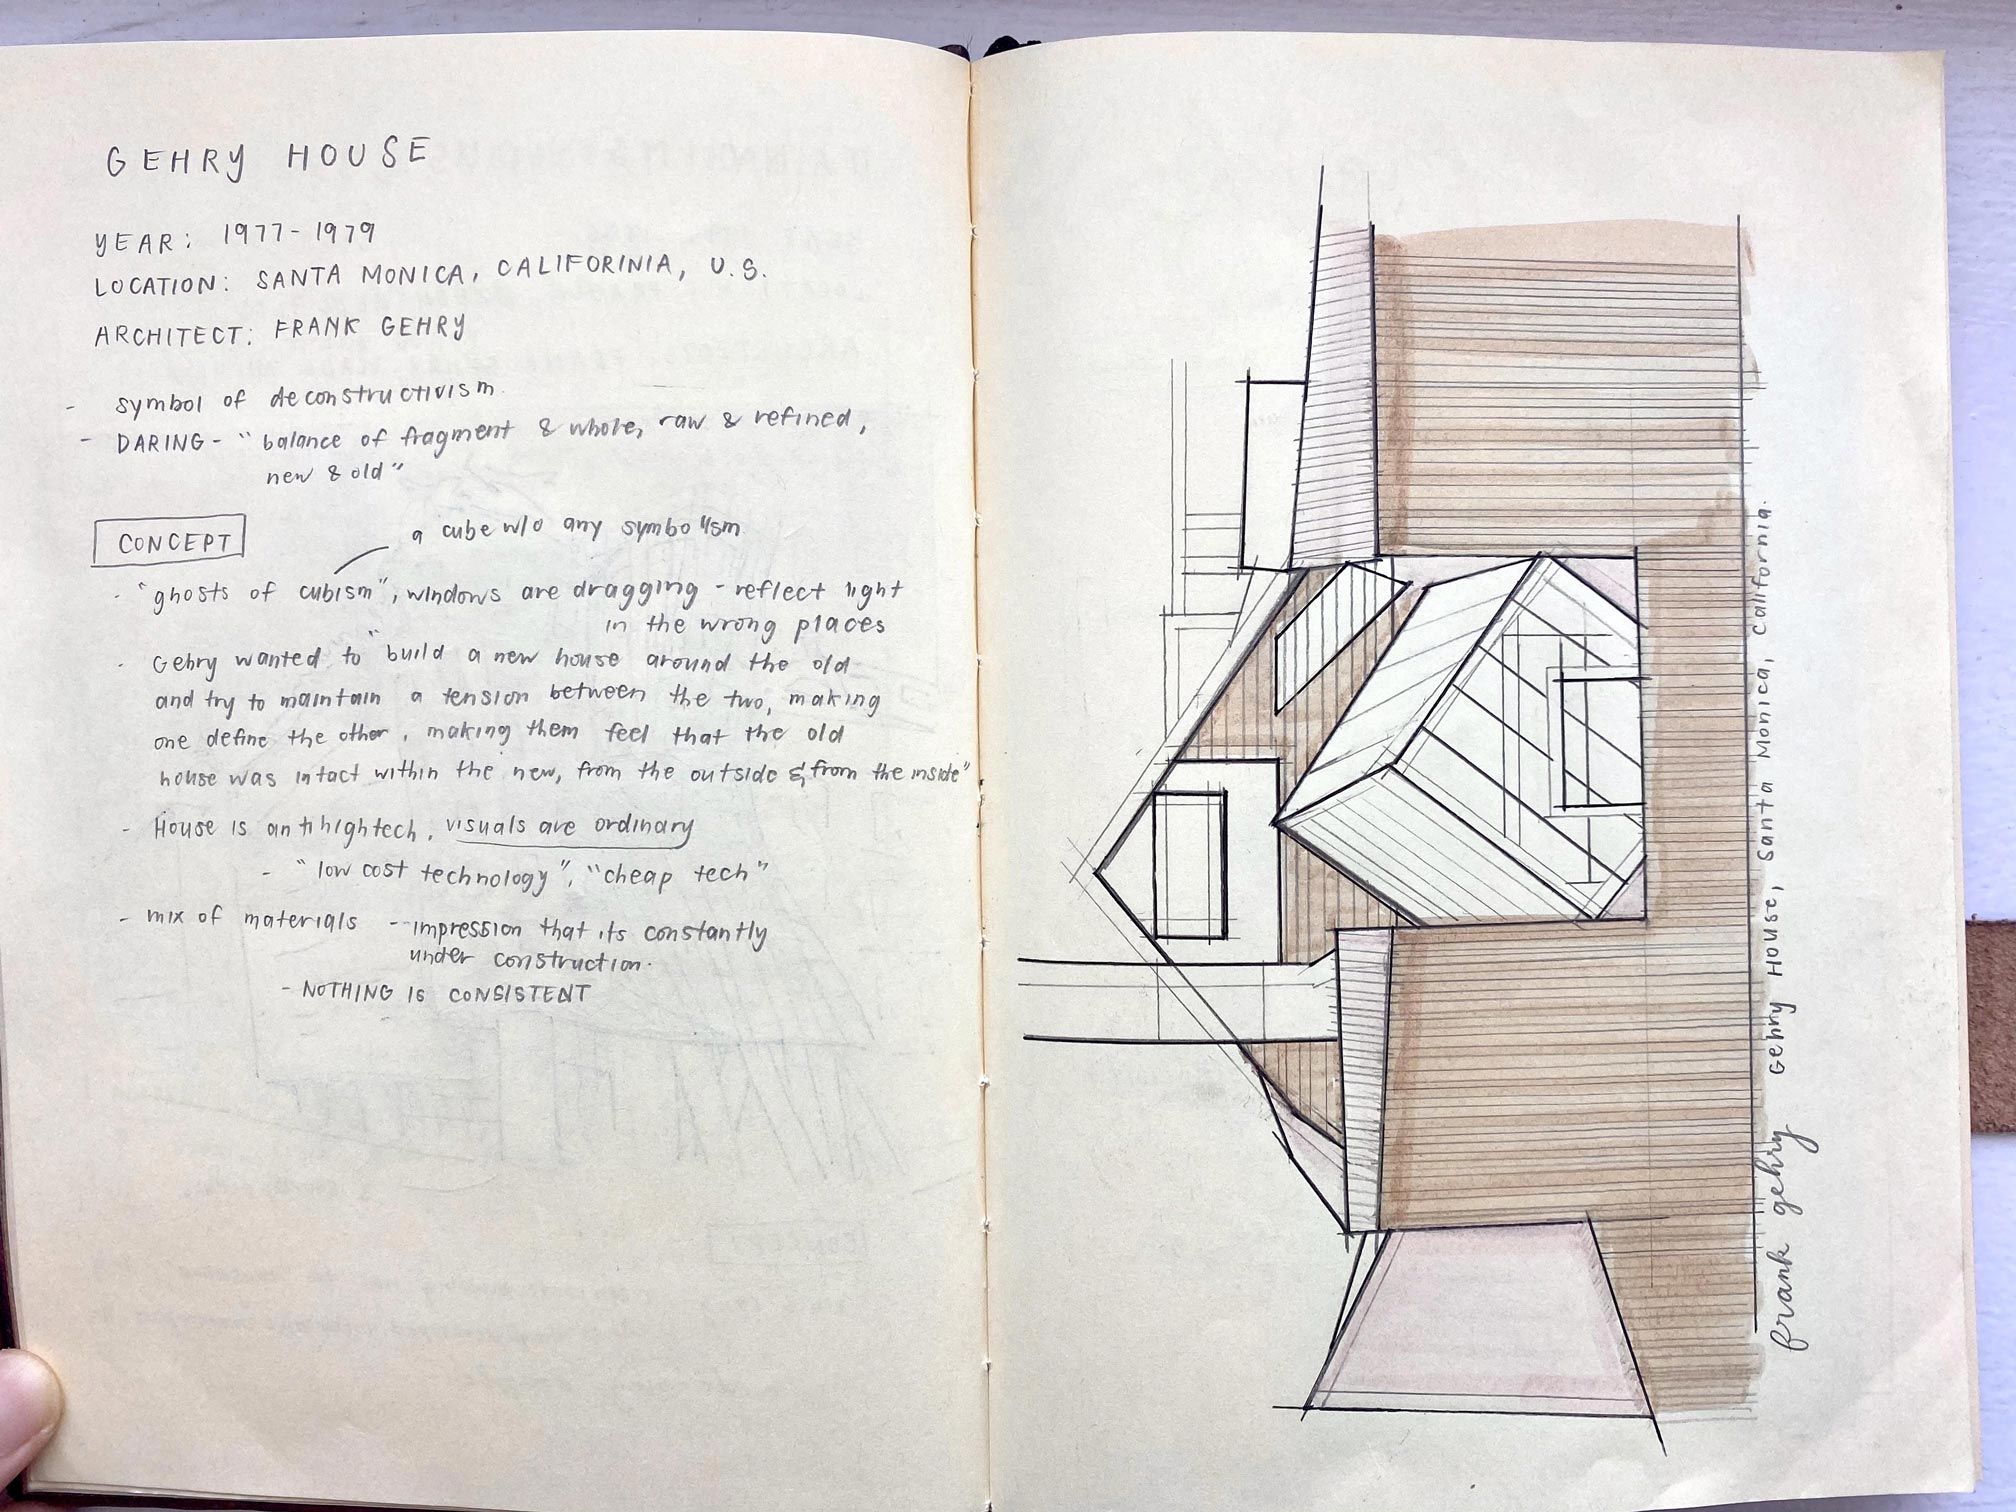 GEHRY HOUSE
YEAR: 1977-1979
LOCATION: SANTA MONICA, CALIFORINIA, U.S.
ARCHITECT: FRANK GEHRY
- symbol of deconstructivism.
- DARING - "balance of fragment & whole, raw & refined,
new & old"
CONCEPT
a cube w/o any symbolism
- "ghosts of cubism", windows are dragging - reflect light
in the wrong places
- Gehry wanted to "build a new house around the old
and try to maintain a tension between the two, making
one define the other, making them feel that the old
house was intact within the new, from the outside & from the inside"
- House is antihightech, visuals are ordinary
- "low cost technology", "cheap tech"
- mix of materials - impression that its constantly
under construction.
- NOTHING IS CONSISTENT
frank gehry Gehry House, Santa Monica, California.